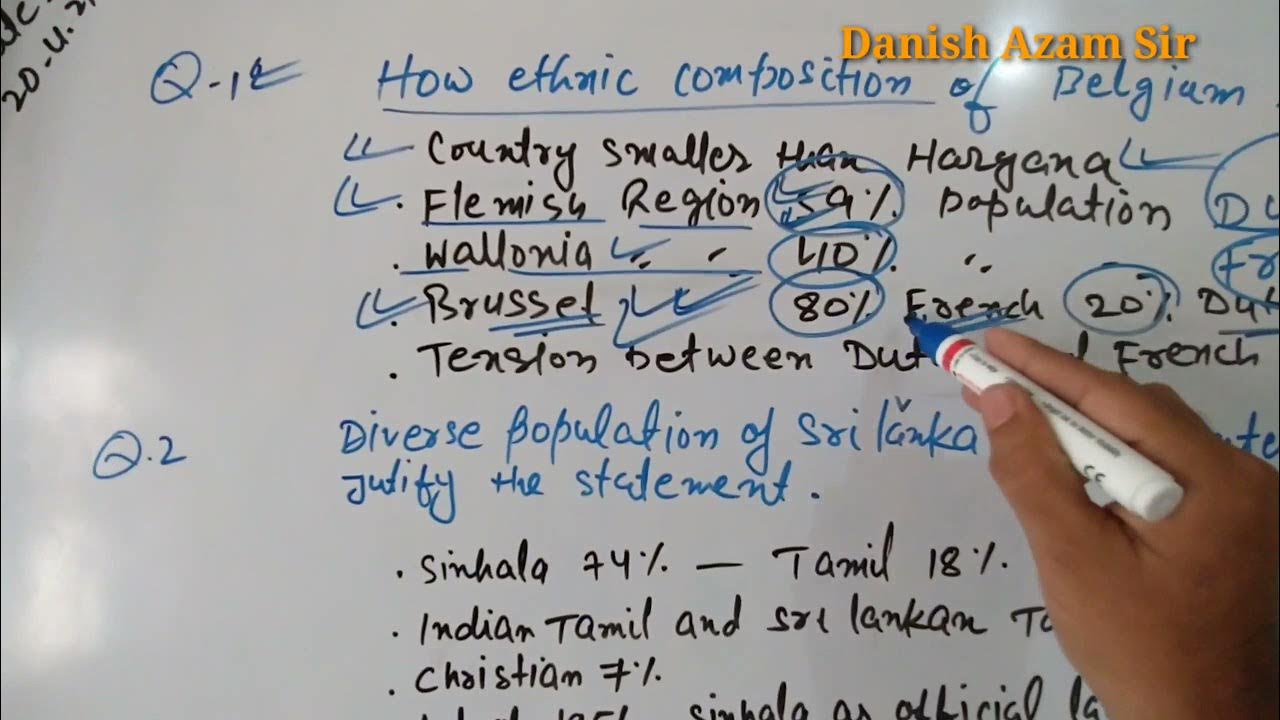 Danish Azam Sir
20-4.2
Q.1 How ethnic composition of Belgium
Country smaller than Haryana
. Flemish Region 59% population Du
. Wallonia " " 40% " Fr
. Brussel 80% French 20% Dut
. Tension between Dut French
Q.2 Diverse population of Sri lanka
Jutify the statement.
. Sinhala 74% — Tamil 18%
. Indian Tamil and Sri lankan Ta
. Christian 7%
Sinhala as official la